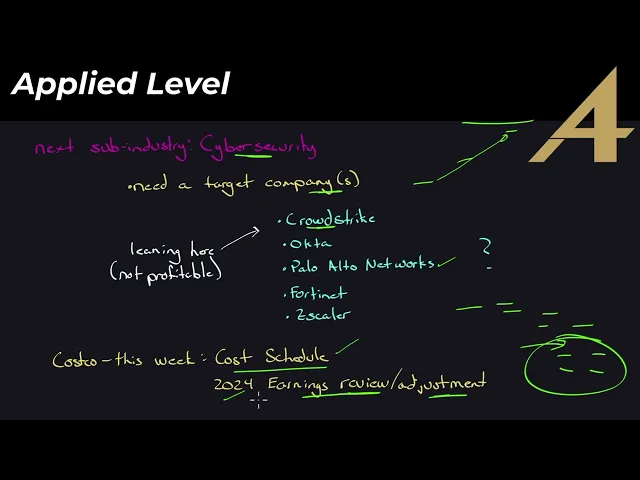 Applied Level
next sub-industry: Cybersecurity
•need a target company(s)
• Crowdstrike
leaning here
(not profitable)
• Okta
• Palo Alto Networks
?
• Fortinet
• Zscaler
Costco - this week: Cost Schedule
2024 Earnings review/adjustment